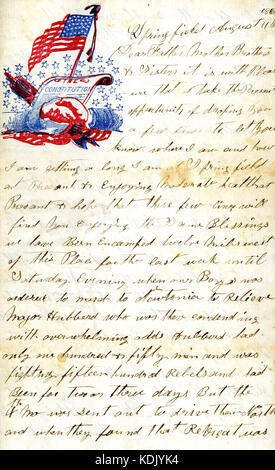 Springfield August 11th
Dear Father Mother Brothers
& Sisters it is with Pleas
ure that I take the Present
opportunity of droping you
a few lines to let you
know where I am and how
I am getting a long I am at Springfield
at Present & Enjoying Moderate health at
Present & hope that these few lines will
find you enjoying the Same Blessings
we have Been Encamped twelve Miles west
of this Place for the last week until
Saturday Evening when our Boys was
ordered to march to to Relieve
Major Hubbard who was there contending
with overwhelming odds Hubbard had
only one hundred & fifty men and was
fighting fifteen hundred Rebels and had
Been for two or three days But the
4th Mo was sent out to drive them
and when they found that Retreat was
CONSTITUTION
alamy
KDJYK4
www.alamy.com